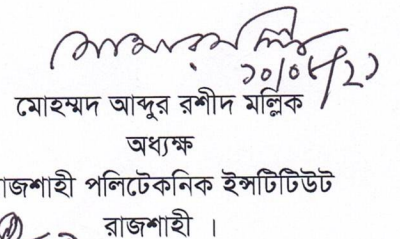 ১০/০৮/২১
মোহম্মদ আব্দুর রশীদ মল্লিক
অধ্যক্ষ
রাজশাহী পলিটেকনিক ইন্সটিটিউট
রাজশাহী ।